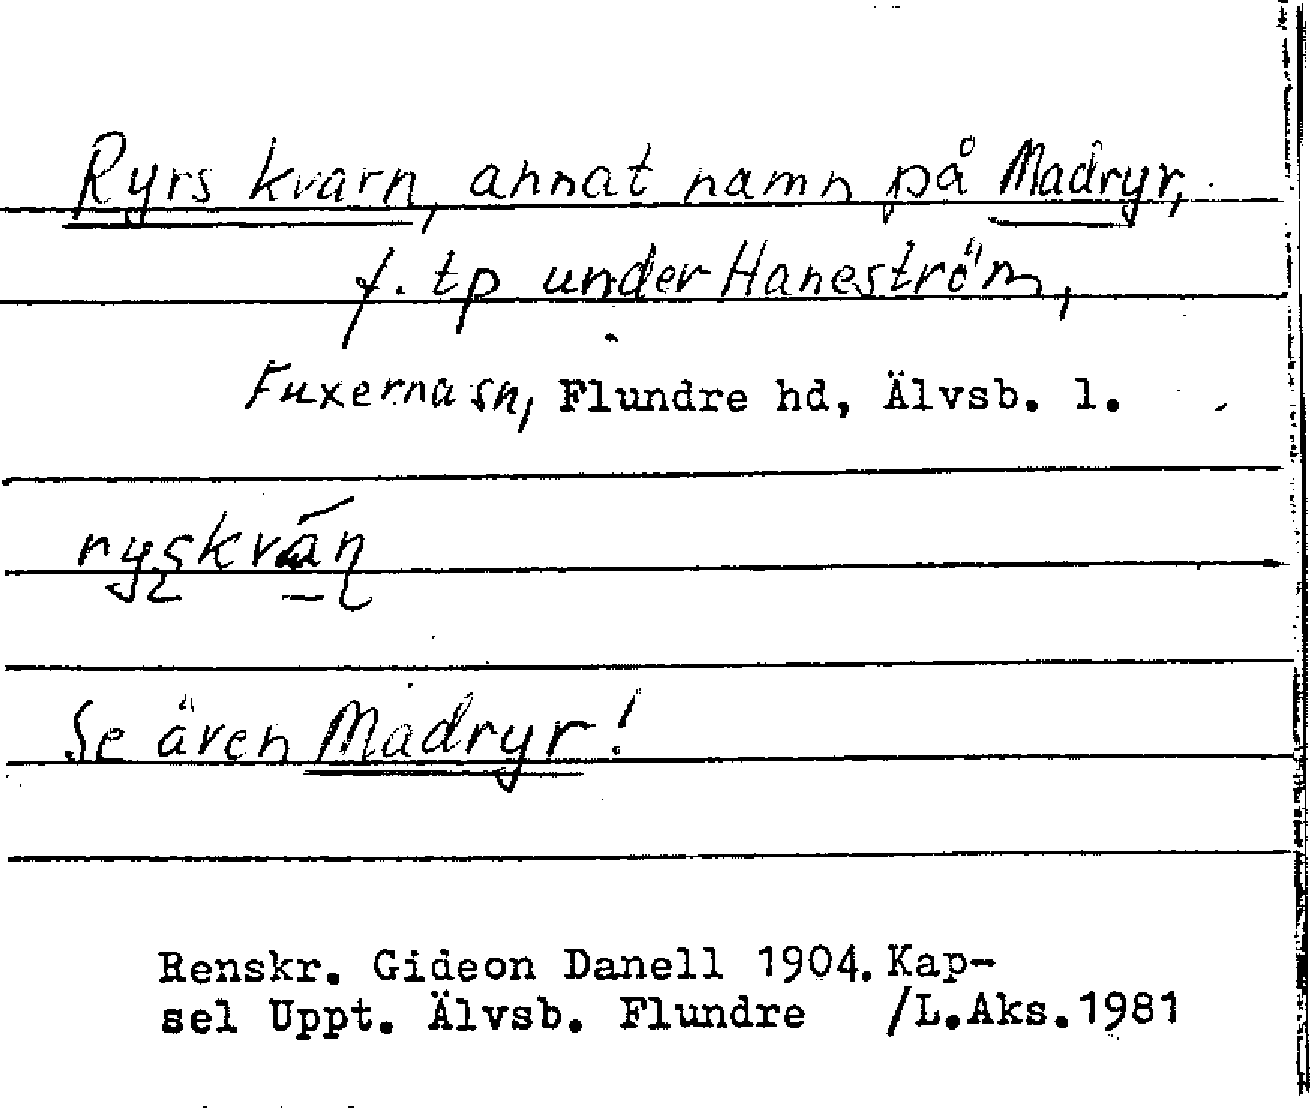 Ryrs kvarn, annat namn på Madryr,
f. tp under Haneström,
Fuxerna sn, Flundre hd, Älvsb. l.
Se även Madryr!
Renskr. Gideon Danell 1904. Kap-
sel Uppt. Älvsb. Flundre /L.Aks.1981